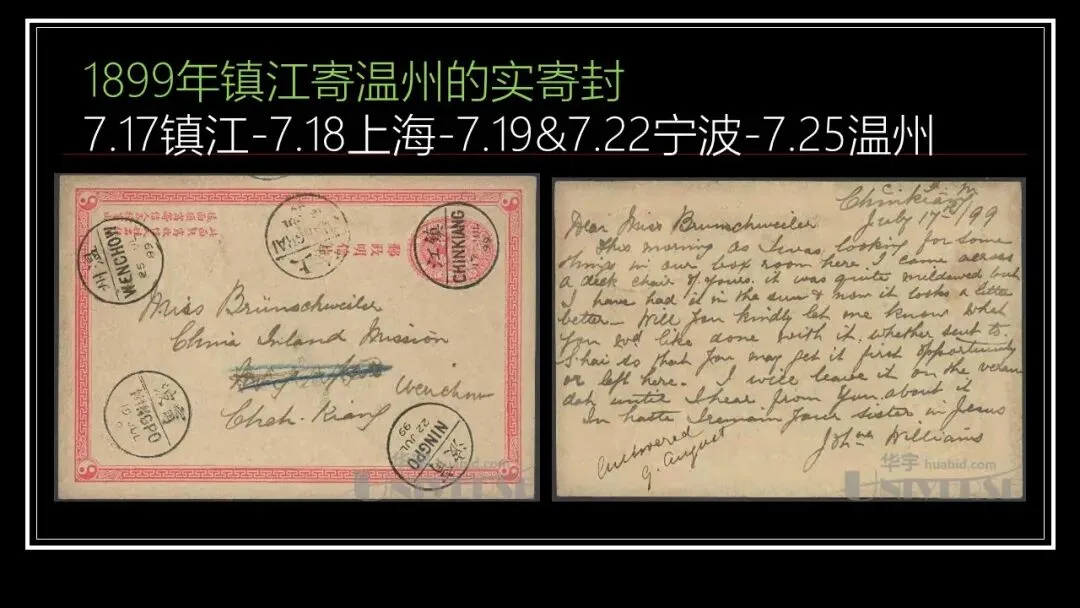 1899年镇江寄温州的实寄封
7.17镇江-7.18上海-7.19&7.22宁波-7.25温州
郵政明信片
州温
WENCHOW
25
99
上
HAI
江鎮
CHINKIANG
Miss Brünschweiler
China Inland Mission
Wenchow
Cheh-Kiang
波寧
NINGPO
19
波寧
NINGPO
22 JUL
99
Chinkiang
July 17th/99
Dear Miss Brunschweiler
This morning as I was looking for some
things in our box room here. I came across
a deck chair of yours. it was quite mildewed but
I have had it in the sun & now it looks a little
better— Will you kindly let me know what
you wd like done with it. whether sent to
S'hai so that you may get it first opportunity
or left here. I will leave it on the veran
dah until I hear from you about it
In haste I remain your sister in Jesus
Williams
Answered
9. August
华宇 huabid.com